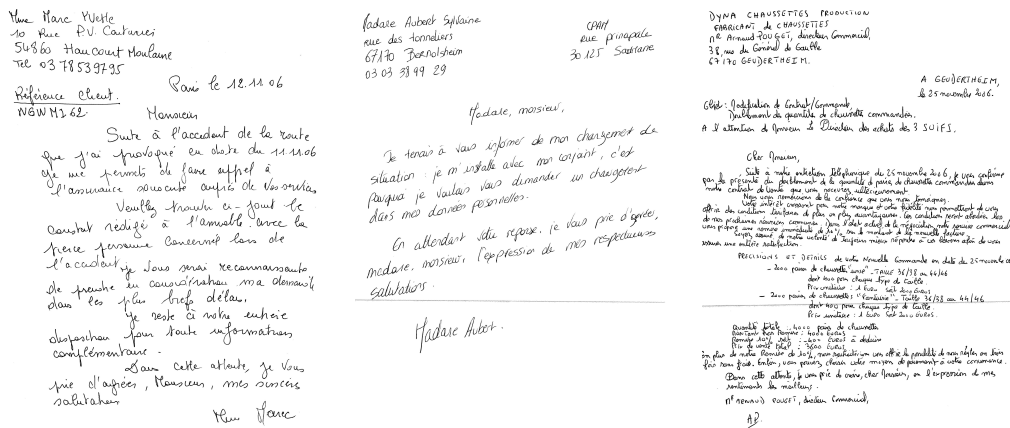 Mme Marc Yvette
10 Rue P.V. Couturier
54860 Haucourt Moulaine
Tel 03 78539795
Paris le 12.11.06
Référence Client.
NGWM162.
Monsieur
Suite à l'accident de la route
que j'ai provoqué en date du 11.11.06
je me permets de faire appel à
l'assurance souscrite auprès de vos services
Veuillez trouver ci-joint le
constat rédigé à l'amiable avec la
pièce personne concerné lors de
l'accident, je vous serai reconnaissante
de prendre en considération ma demande
dans les plus brefs délais.
Je reste à votre entière
disposition pour toute information
complémentaire.
Dans cette attente, je vous
prie d'agréer, Monsieur, mes sincères
salutations
Mme Marc
Madame Aubert Sylvaine
rue des tonneliers
67170 Bernolsheim
03 03 38 99 29
CPAM
rue principale
30 125 Saumane
Madame, monsieur,
Je tenais à vous informer de mon changement de
situation : je m'installe avec mon conjoint, c'est
pourquoi je voulais vous demander un changement
dans mes données personnelles.
En attendant votre réponse, je vous prie d'agréer,
madame, monsieur, l'expression de mes respectueuses
salutations.
Madame Aubert.
DYNA CHAUSSETTES PRODUCTION
FABRICANT de CHAUSSETTES
Mr Arnaud POUGET, directeur Commercial,
38, rue du Général de Gaulle
67170 GEUDERTHEIM.
A GEUDERTHEIM,
le 25 novembre 2006.
Objet : Modification de Contrat/Commande,
Doublement des quantités de chaussettes commandées.
A l'attention de Monsieur Le Directeur des achats des 3 SUIFS.
Cher Monsieur,
Suite à notre entretien téléphonique du 25 novembre 2006, je vous confirme
par la présente du doublement de la quantité de paires de chaussettes commandées dans
notre contrat de vente que vous recevrez ultérieurement.
Nous vous remercions de la confiance que vous nous témoignez.
Votre intérêt croissant pour notre marque et notre qualité nous permettent de vous
offrir des conditions tarifaires de plus en plus avantageuses. Ces conditions seront abordées lors
de nos prochaines réunions communes. Dans l'état actuel de la négociation, notre service commercial
vous propose une remise immédiate de 10%, sur le montant de la nouvelle facture.
Soyez assuré de notre volonté de toujours mieux répondre à vos besoins afin de vous
assurer une entière satisfaction.
PRECISIONS ET DETAILS de votre Nouvelle Commande en date du 25 novembre
- 2000 paires de chaussettes "unie" - TAILLE 36/38 au 44/46
dont 400 pour chaque type de taille.
Prix unitaire : 1 Euro Soit 2000 EUROS
- 2000 paires de chaussettes : "Fantaisie" - Taille 36/38 au 44/46
dont 400 pour chaque type de taille.
Prix unitaire : 1 EURO Soit 2000 EUROS.
Quantité totale : 4000 paires de chaussettes
Montant hors Remise : 4000 EUROS
Remise 10% net : -400 EUROS à déduire
Prix de vente total : 3600 EUROS
En plus de notre Remise de 10%, nous souhaiterions vous offrir la possibilité de nous régler en trois
fois sans frais. Enfin, vous pouvez choisir votre moyen de paiement à votre convenance.
Dans cette attente, je vous prie de croire, cher Monsieur, en l'expression de mes
sentiments les meilleurs.
Mr ARNAUD POUGET, directeur Commercial,
AP.